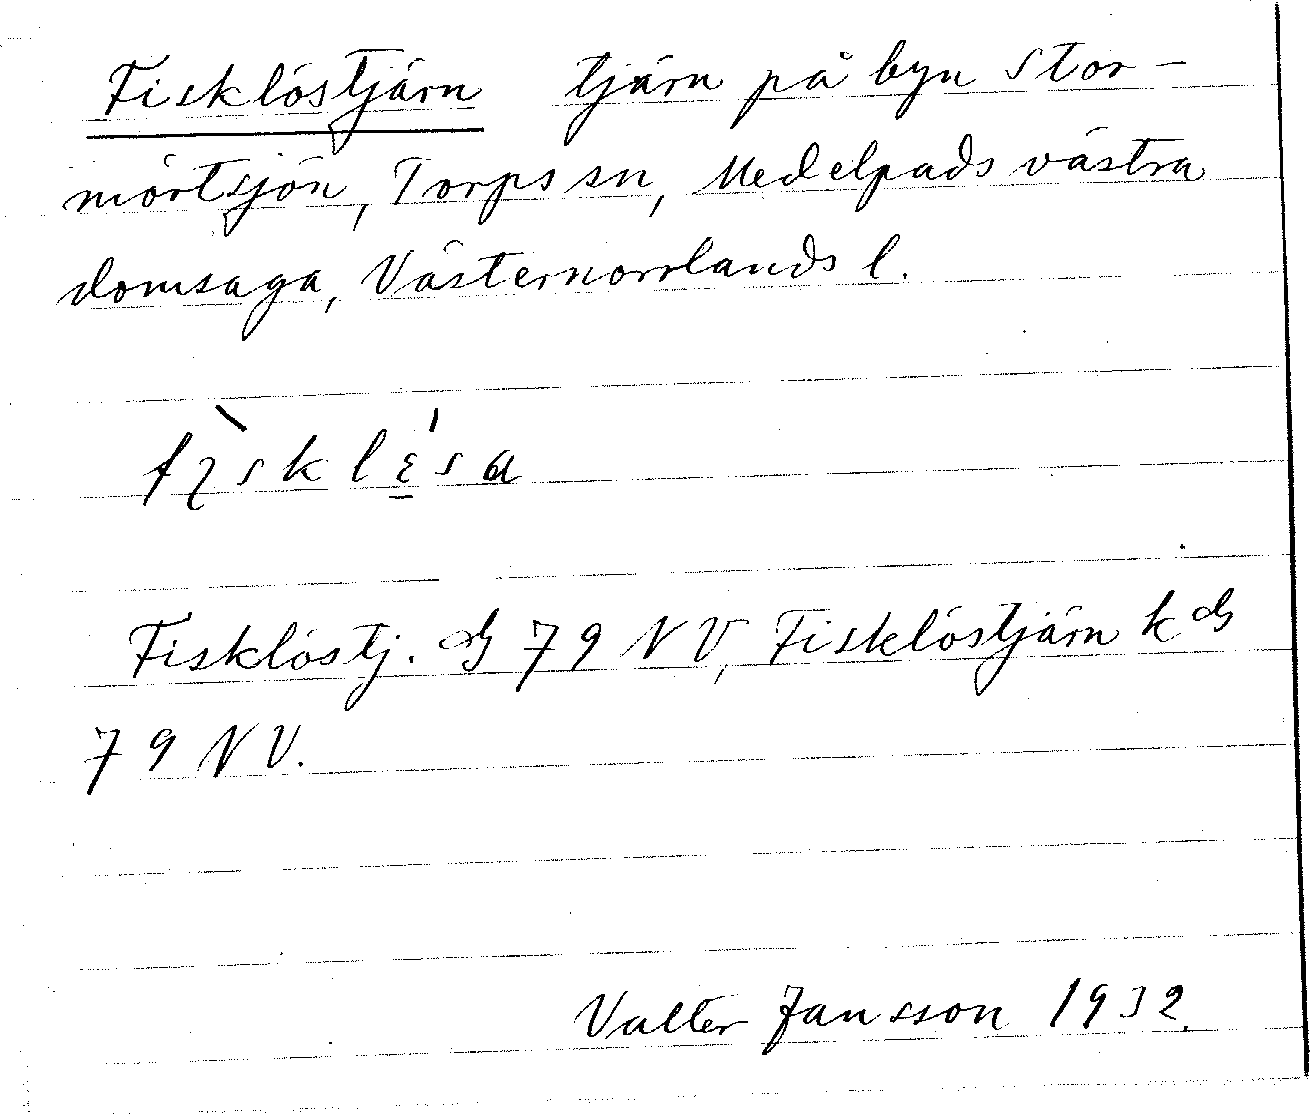 Fisklöstjärn tjärn på byn Stor-
mörtsjön, Torps sn, Medelpads västra
domsaga, Västernorrlands l.
Fisklöstj. G 79 NV, Fisklöstjärn k G
79 NV.
Valter Jansson 1932.